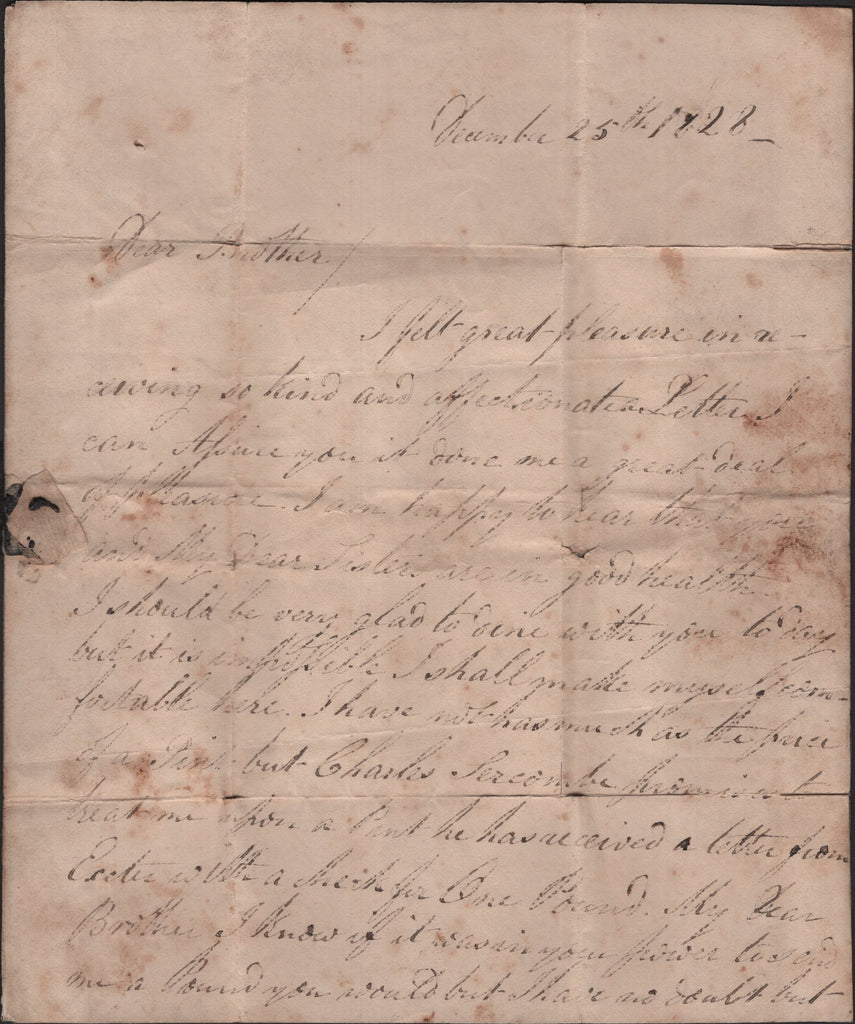 December 25th 1828
Dear Brother /
I felt great pleasure in re-
ceiving so kind and affectionate a Letter I
can Assure you it done me a great deal
of pleasure. I am happy to hear that you
and My Dear Sister are in good health.
I should be very glad to dine with you to day
but it is impossible I shall make myself com-
fortable here. I have not has much as the price
of a Pint but Charles Sercombe promises t
treat me upon a Pint he has received a letter from
Exeter with a check for One Pound. My Dear
Brother I know if it was in your power to send
me a Pound you would but I have no doubt but